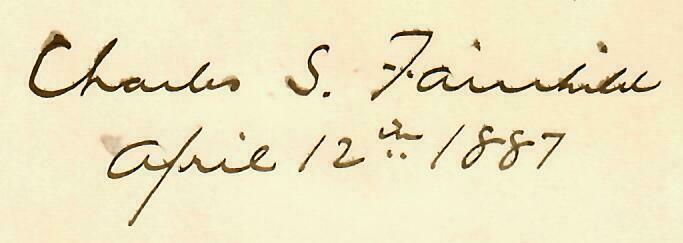 Charles S. Fairchild
April 12th 1887